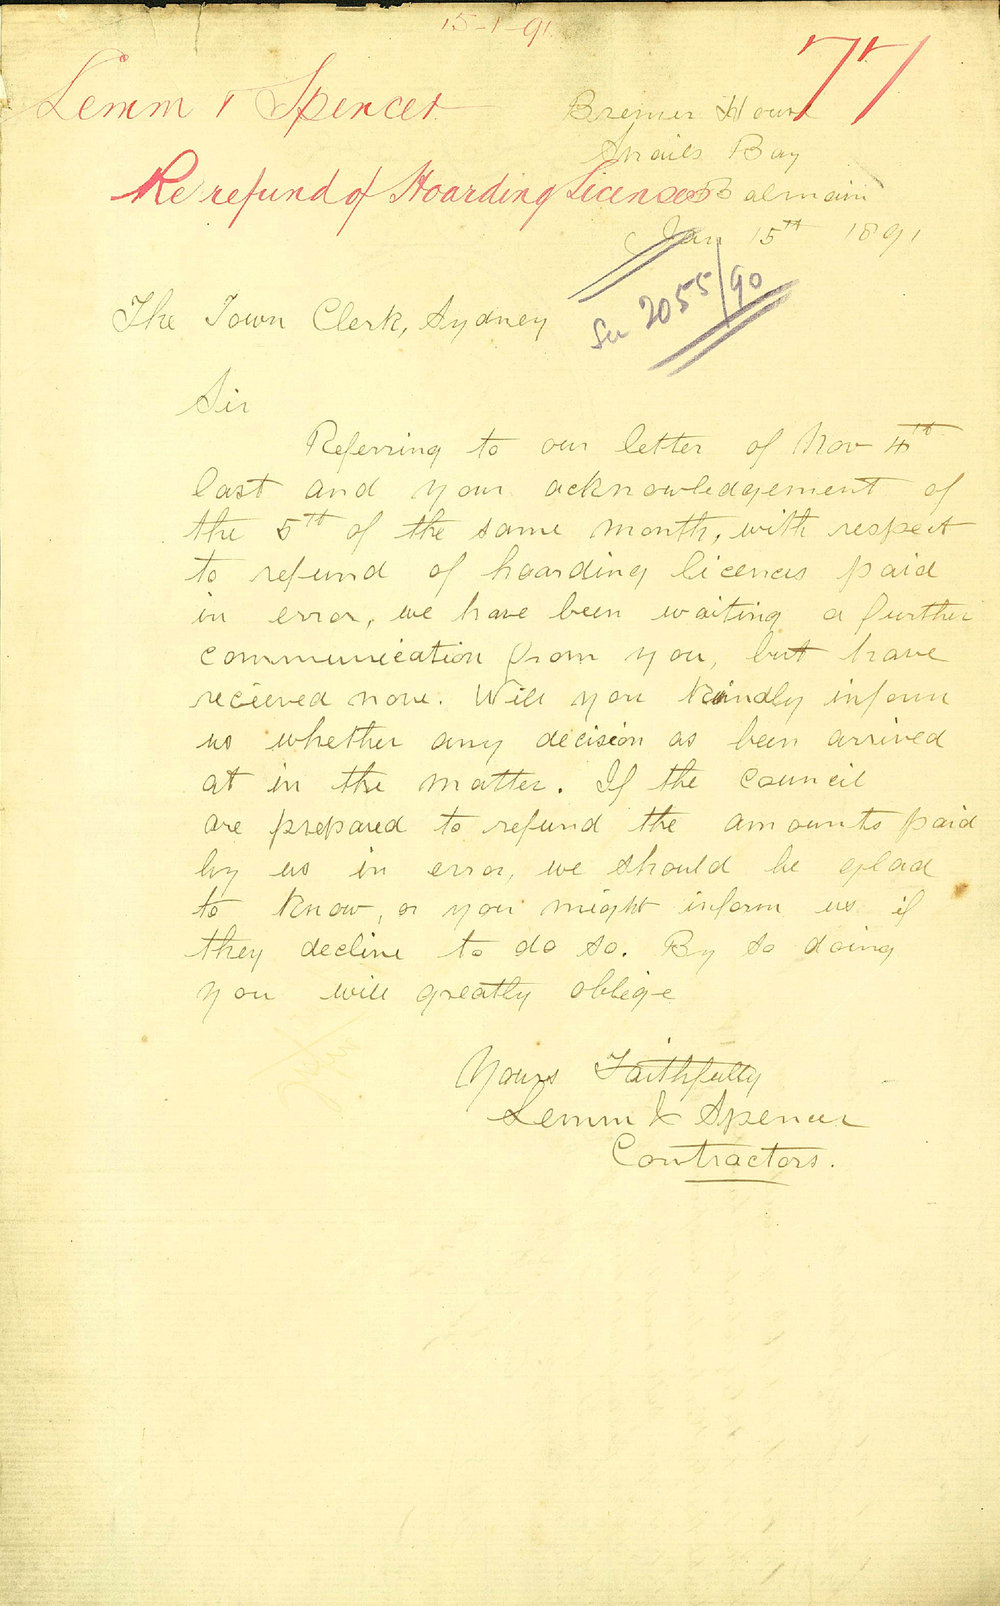 15-1-91
77
Lemm & Spencer
Bremer House
Snails Bay
Re refund of Hoarding Licenses
Balmain
Jan 15th 1891
See 2055/90
The Town Clerk, Sydney
Sir
Referring to our letter of Nov 4th
last and your acknowledgement of
the 5th of the same month, with respect
to refund of hoarding licences paid
in error, we have been waiting a further
communication from you, but have
recieved none. Will you kindly inform
us whether any decision as been arrived
at in the matter. If the council
are prepared to refund the amounts paid
by us in error, we should be glad
to know, or you might inform us if
they decline to do so. By so doing
you will greatly oblige
Yours Faithfully
Lemm & Spencer
Contractors.